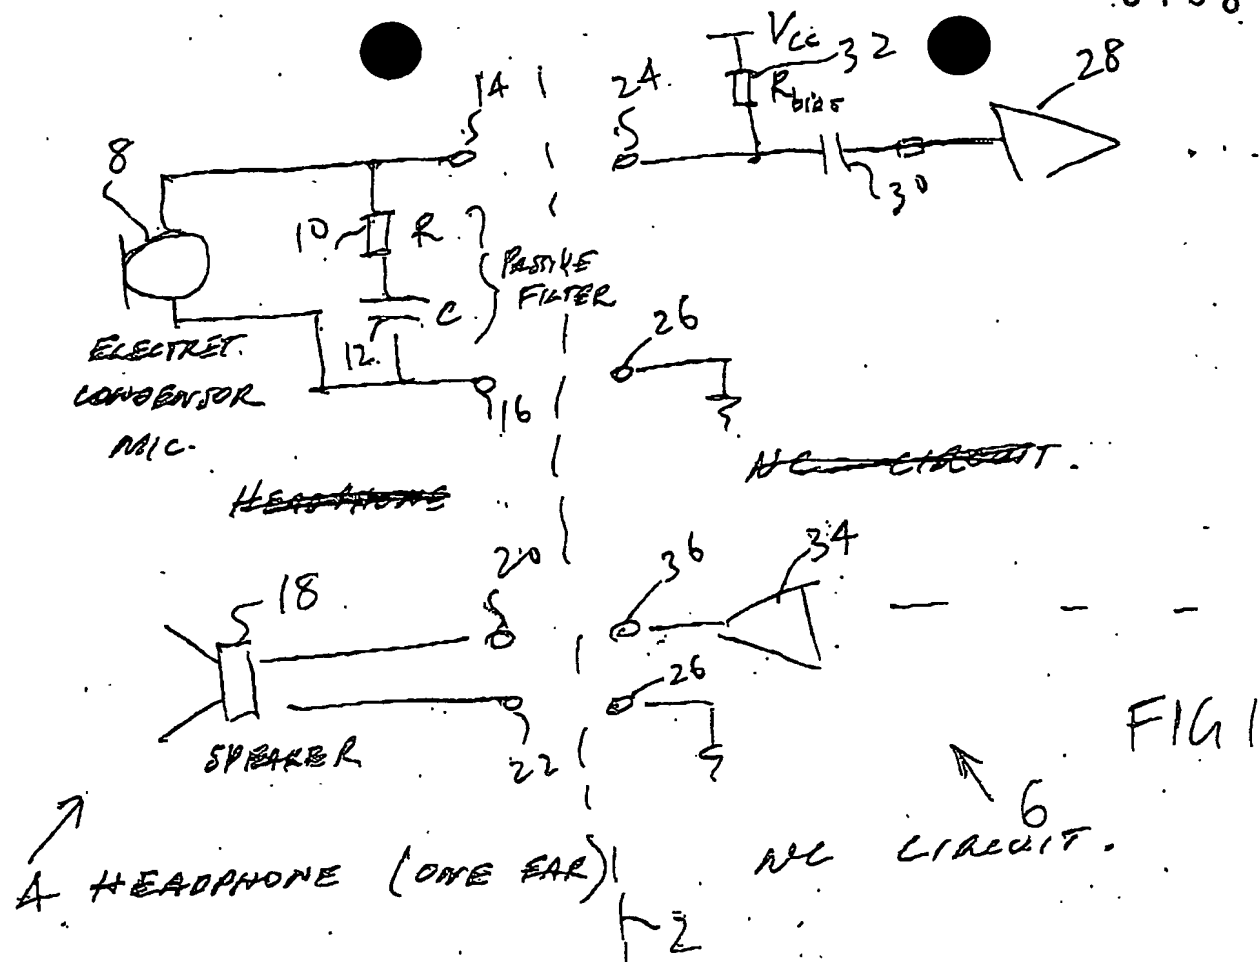 Vcc
32
28
14
24
Rbias
8
30
10
R
PASSIVE
FILTER
C
12
26
ELECTRET.
CONDENSOR
MIC.
16
NC CIRCUIT.
HEADPHONE
20
36
34
18
26
SPEAKER
22
FIG 1
6
4 HEADPHONE (ONE EAR)
NC CIRCUIT.
2